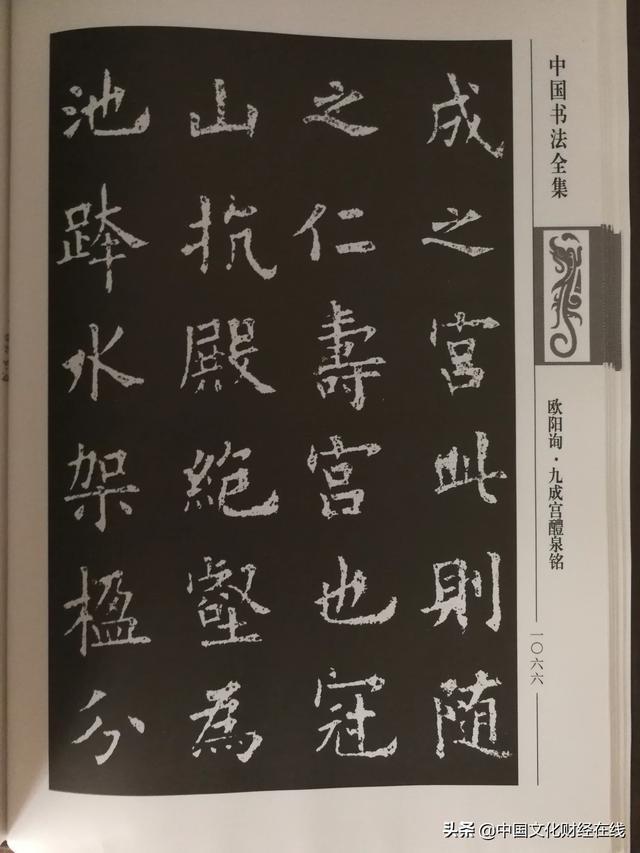 成之宫此則随
之仁壽宫也冠
山抗殿絶壑為
池跨水架楹分
中国书法全集
欧阳询·九成宫醴泉铭
一〇六六
头条 @中国文化财经在线